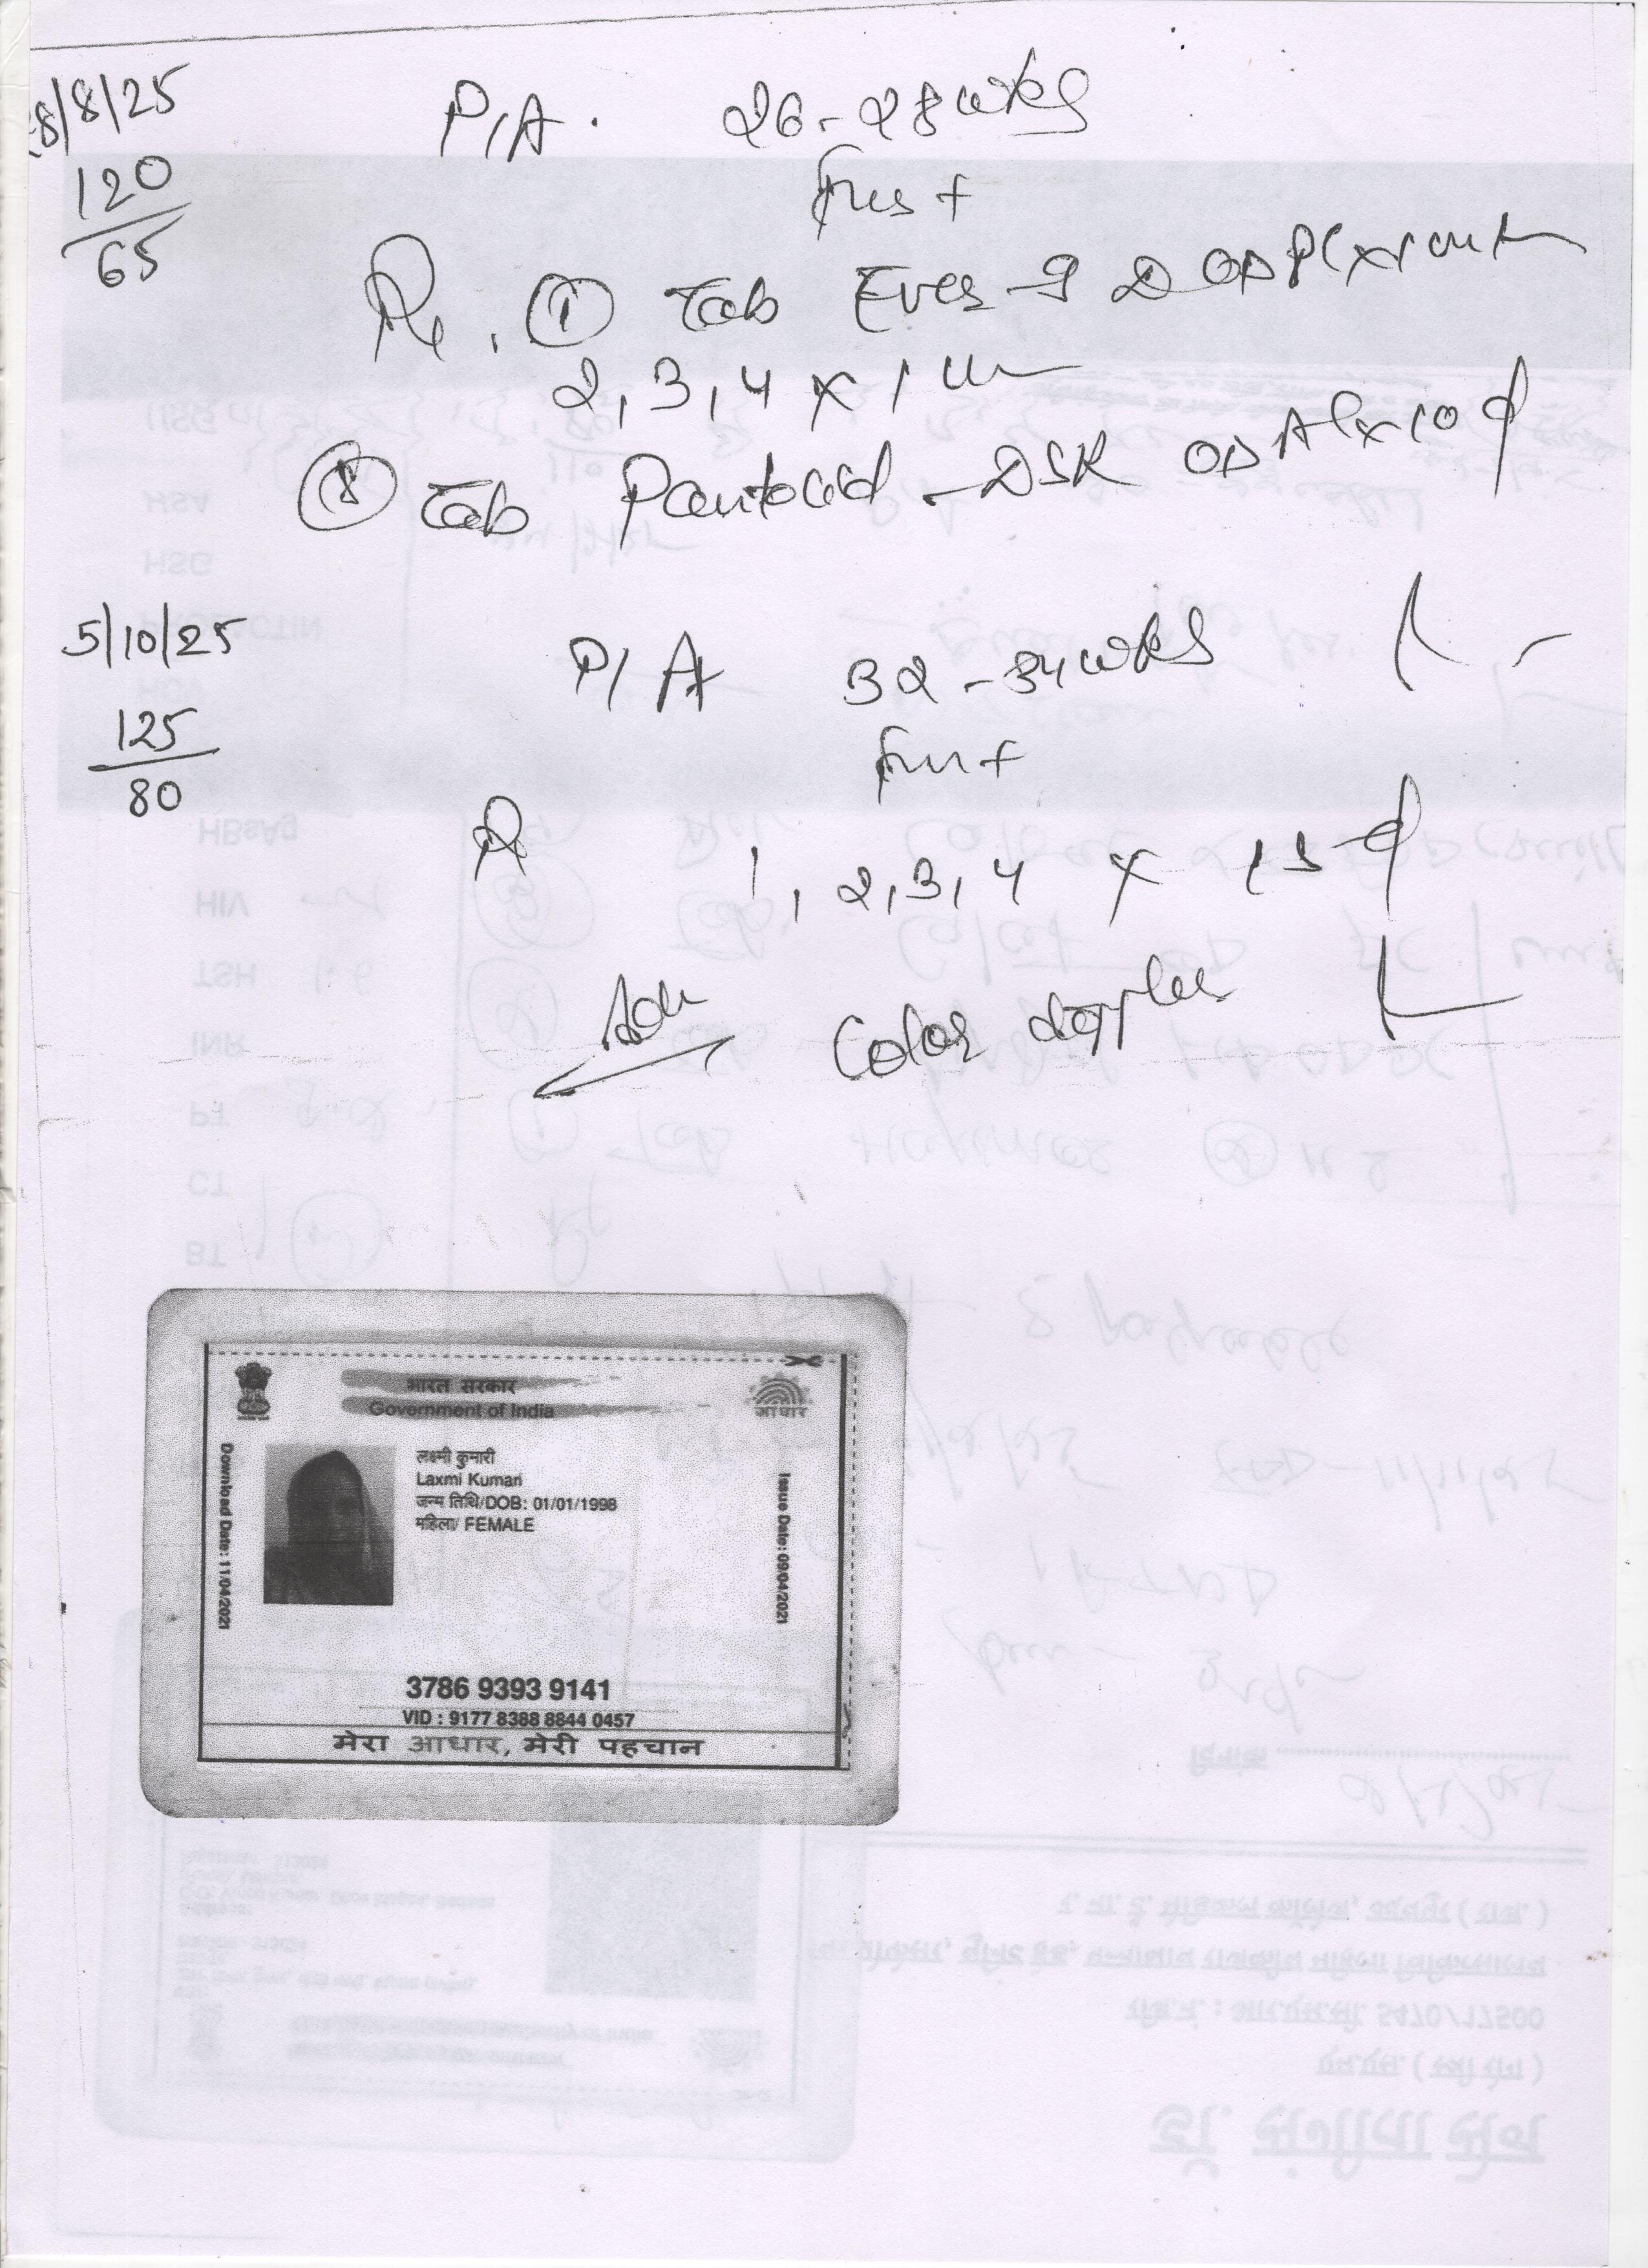 28/8/25
P/A. 26-28 wks
120
65
FHS +
Rx. ① Tab Ever-9 D OD PC x 1 month
2, 3, 4 x 1 m
⑧ Tab Pantocid-DSR OD AC x 10 d
5/10/25
P/A 32-34 wks
125
80
FHS +
Rx 1, 2, 3, 4 x 15 d
Adv Color doppler
भारत सरकार
Government of India
आधार
लक्ष्मी कुमारी
Laxmi Kumari
जन्म तिथि/DOB: 01/01/1998
महिला/ FEMALE
Download Date: 11/04/2021
Issue Date: 09/04/2021
3786 9393 9141
VID : 9177 8388 8844 0457
मेरा आधार, मेरी पहचान